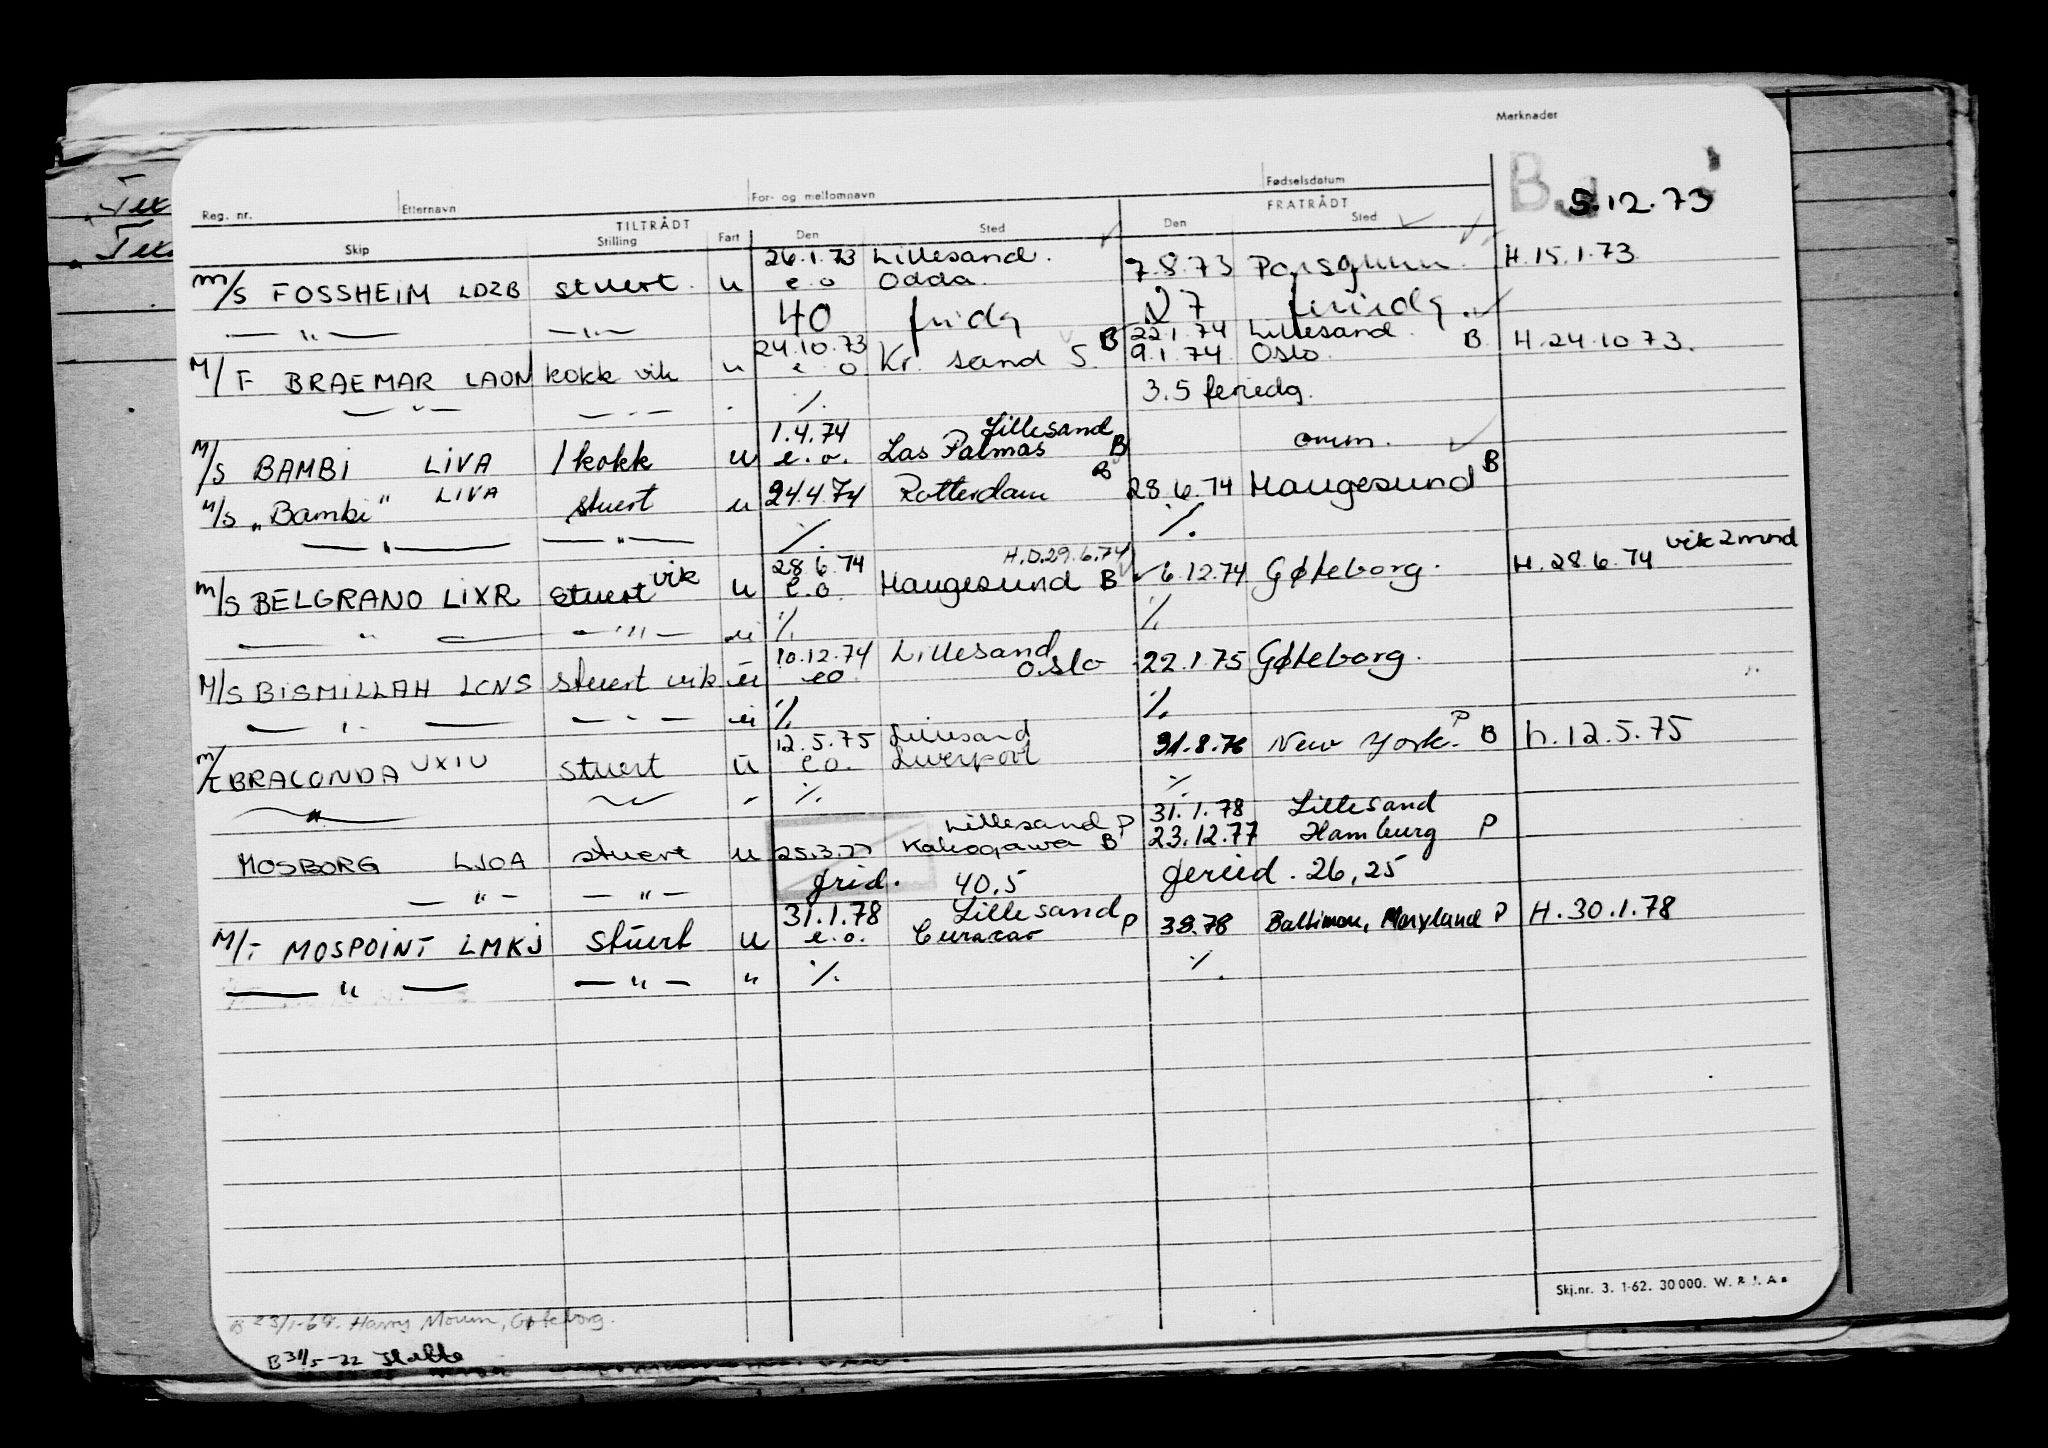 Merknader
Reg. nr. Etternavn For- og mellomnavn Fødselsdatum
5.12.73
TILTRÅDT FRATRÅDT
Skip Stilling Fart Den Sted Den Sted
26.1.73 Lillesand.
M/S FOSSHEIM LDZB stuert. u e.o Odda. 7.8.73 Porsgrunn. H.15.1.73
— " — — " — 40 fridg 27 friidg
24.10.73 22.1.74 Lillesand.
M/F BRAEMAR LAON kokk vik u e.o Kr. sand S. B 9.1.74 Oslo. B H.24.10 73.
— " — — " — " ·/. 3.5 feriedg.
1.4.74 Lillesand
M/S BAMBI LIVA 1 kokk u e.o. Las Palmas B omm.
M/S „Bambi" LIVA stuert u 24.4.74 Rotterdam B 28.6.74 Haugesund B
— " — — " — ·/. ·/.
28.6.74 H.D.29.6.74 vik 2 mnd
M/S BELGRANO LIXR stuert vik u e.o. Haugesund B 6.12.74 Gøteborg. H.28.6.74
— " — — " — u ·/. ·/.
10.12.74 Lillesand
M/S BISMILLAH LCNS stuert vik u eo Oslo 22.1.75 Gøteborg.
— " — — " — u ·/. ·/.
12.5.75 Lillesand
M/T BRALONDA UXIU stuert u e.o. Liverpool 31.8.76 New York. P B h.12.5.75
— " — — " — " ·/. ·/.
Lillesand P 31.1.78 Lillesand
MOSBORG LJOA stuert u 25.3.77 Kakogawa B 23.12.77 Hamburg P
— " — — " — frid. 40.5 feried. 26,25
31.1.78 Lillesand
M/T MOSPOINT LMKJ stuert u e.o. Curacao P 3.9.78 Baltimore, Maryland P H.30.1.78
— " — — " — " ·/. ·/.
Skj.nr. 3. 1-62. 30 000. W.
B 23/1-69. Harry Moum, Gøteborg.
B 31/5-72